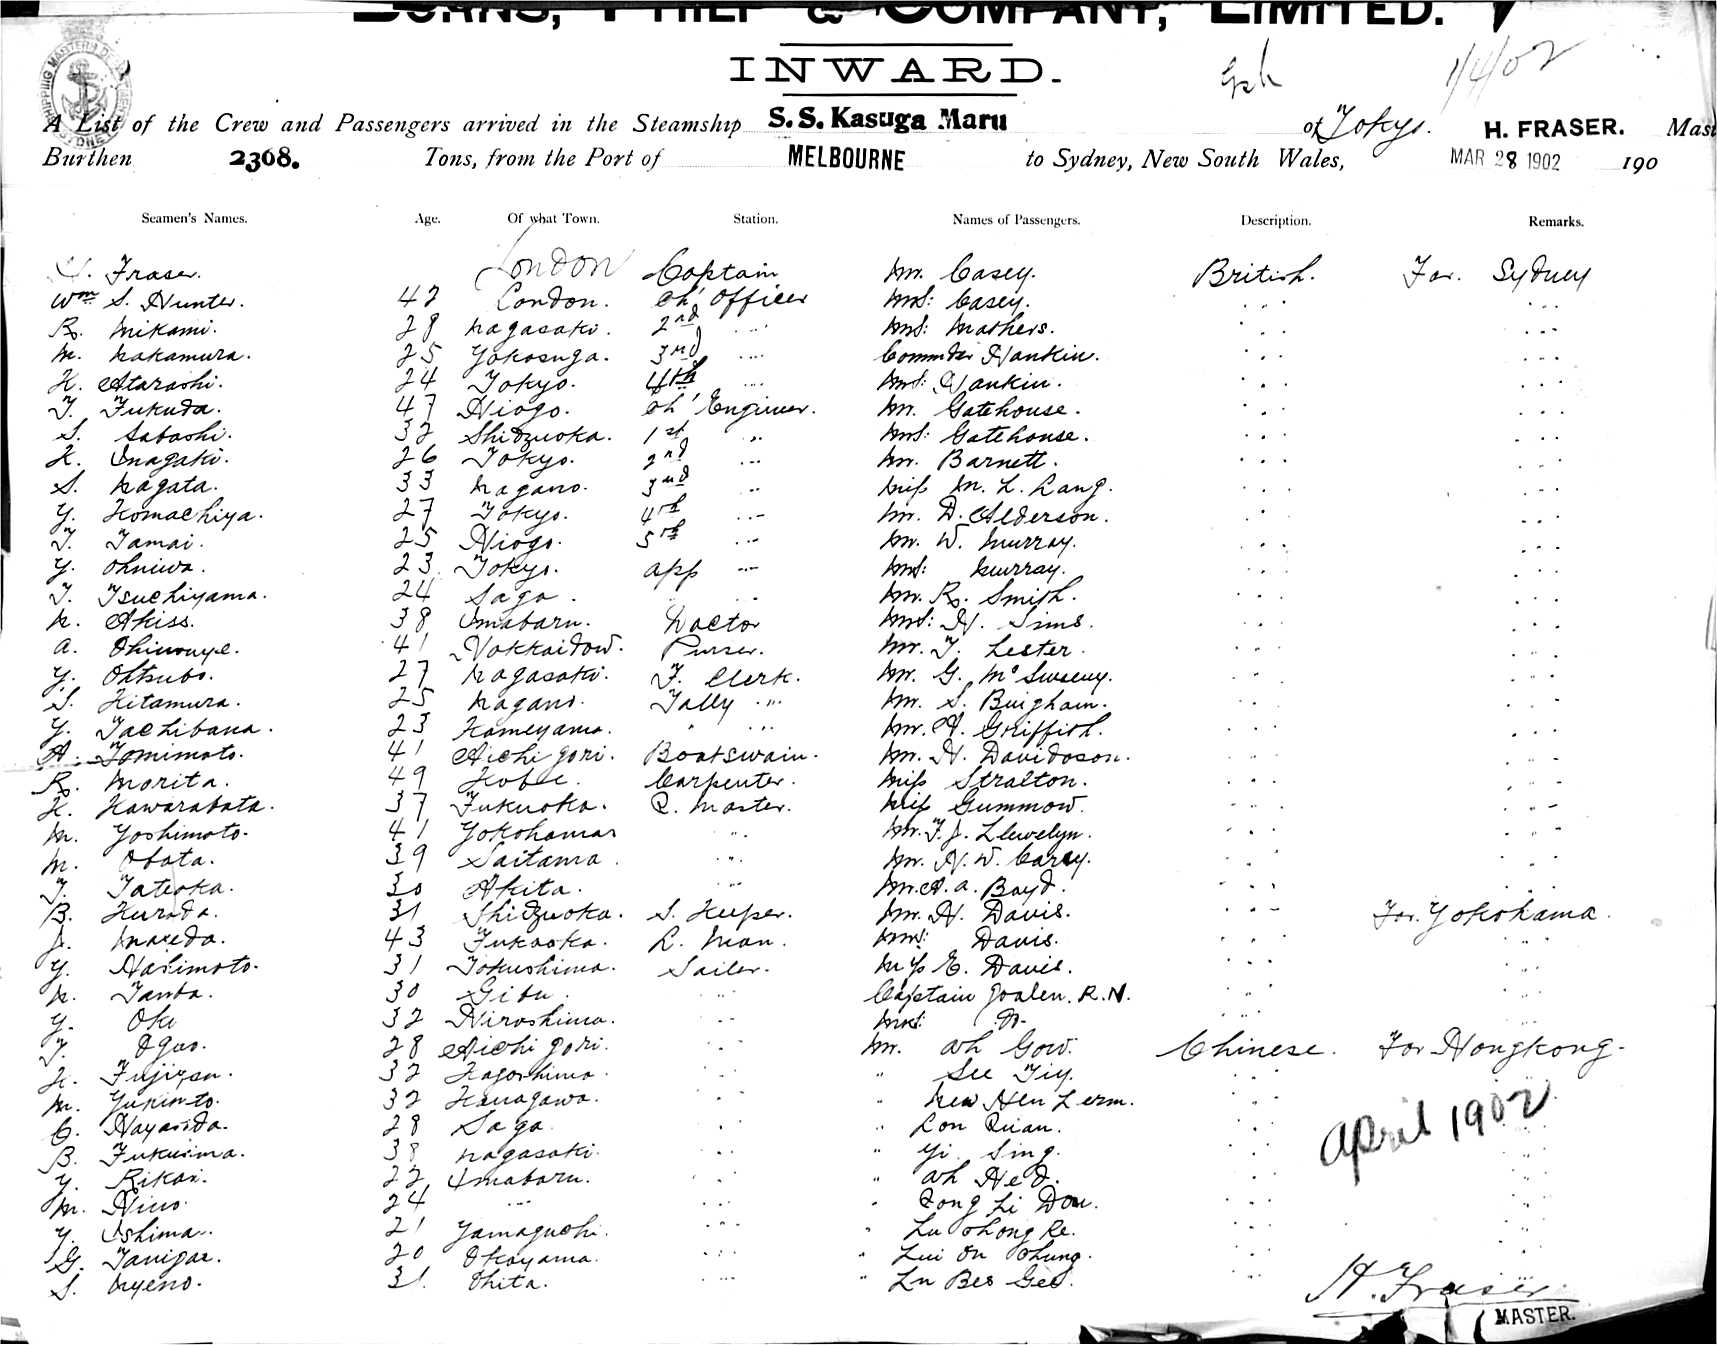 BURNS, PHILP & COMPANY, LIMITED.
INWARD.
1/4/02
A List of the Crew and Passengers arrived in the Steamship S. S. Kasuga Maru of Tokyo. H. FRASER. Mast
Burthen 2368. Tons, from the Port of MELBOURNE to Sydney, New South Wales, MAR 28 1902 190
Seamen's Names. Age. Of what Town. Station. Names of Passengers. Description. Remarks.
H. Fraser. London Captain Mr. Casey. British. For Sydney
Wm S. Hunter. 42 London. Ch' Officer Mrs: Casey. " "
R. Mikami. 28 Nagasaki. 2nd " Mrs: Mathers. " "
M. Nakamura. 25 Yokosuga. 3rd " Commdr Hankin. " "
K. Atarashi. 24 Tokyo. 4th " Mrs: Hankin. " "
T. Fukuda. 47 Hiogo. Ch' Engineer. Mr. Gatehouse. " "
S. Sabashi. 32 Shidzuoka. 1st " Mrs: Gatehouse. " "
K. Inagaki. 26 Tokyo. 2nd " Mr. Barnett. " "
S. Nagata. 33 Nagano. 3rd " Miss M. L. Lang. " "
Y. Komachiya. 27 Tokyo. 4th " Mr. D. Alderson. " "
T. Tamai. 25 Hiogo. 5th " Mr. W. Murray. " "
Y. Ohniwa. 23 Tokyo. App " Mrs: Murray. " "
T. Tsuchiyama. 24 Saga. " Mr. R. Smith. " "
N. Akiss. 38 Imabaru. Doctor Mrs: H. Sims. " "
A. Ohinouye. 41 Hokkaidow. Purser. Mr. T. Lester. " "
Y. Ohtsubo. 27 Nagasaki. F. Clerk. Mr. G. McSweeny. " "
S. Kitamura. 25 Nagano. Tally " Mr. S. Bingham. " "
Y. Tachibana. 23 Kameyama. " " Mr. A. Griffith. " "
A. Tomimoto. 41 Aichi gori. Boatswain. Mr. H. Davidson. " "
R. Morita. 49 Kobe. Carpenter. Miss Stralton. " "
K. Kawarabata. 37 Fukuoka. Q. Master. Miss Gummow. " "
M. Yoshimoto. 41 Yokohama " Mr. T. J. Llewelyn. " "
M. Obata. 39 Saitama. " Mr. H. W. Carey. " "
T. Tateoka. 30 Akita. " Mr. A. A. Boyd. " "
B. Kuroda. 31 Shidzuoka. S. Keeper. Mr. H. Davis. " For Yokohama.
J. Maeda. 43 Fukuoka. L. Man. Mrs: Davis. "
Y. Hashimoto. 31 Tokushima. Sailor. Miss E. Davis. " "
N. Tanba. 30 Gibu. " Captain R.N. " "
Y. Oki 32 Hiroshima. " Mrs: Do. " "
T. Ogus. 28 Aichi gori. " Mr. Ah Gow. Chinese. For Hongkong.
K. Fujizen. 32 Kagoshima. " " See Tiy. "
M. Yukimoto. 32 Kanagawa. " " New Hen Lerm. "
Hayashida. 28 Saga. " " Lon Quan. " April 1902
B. Fukusima. 38 Nagasaki. " " Yi Sing. "
Y. Rikai. 22 Imabaru. " " Ah Hed. " "
M. Hino. 24 " " " Li Dou. " "
Y. Ishima. 21 Yamaguchi. " " Lu Chong Re. " "
G. Tanigae. 20 Okayama. " " Lui On Chung. " "
S. Nyeno. 31. Ohita. " " Lu Bes Gee. "
H. Fraser
MASTER.